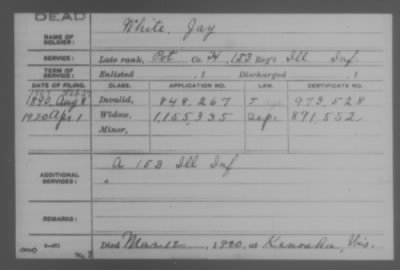 DEAD
NAME OF SOLDIER: White, Jay
SERVICE: Late rank, Pvt Co. H, 153 Reg't Ill Inf.
TERM OF SERVICE: Enlisted , 1 Discharged , 1
DATE OF FILING. CLASS. APPLICATION NO. LAW. CERTIFICATE NO.
1890 Aug 8 Invalid, 848,267 973,528
1920 Apr 1 Widow, 1,155,335 Sep. 891,552
Minor,
ADDITIONAL SERVICES: A 153 Ill Inf
REMARKS:
Died Mar 12, 1920, at Kenosha, Wis.